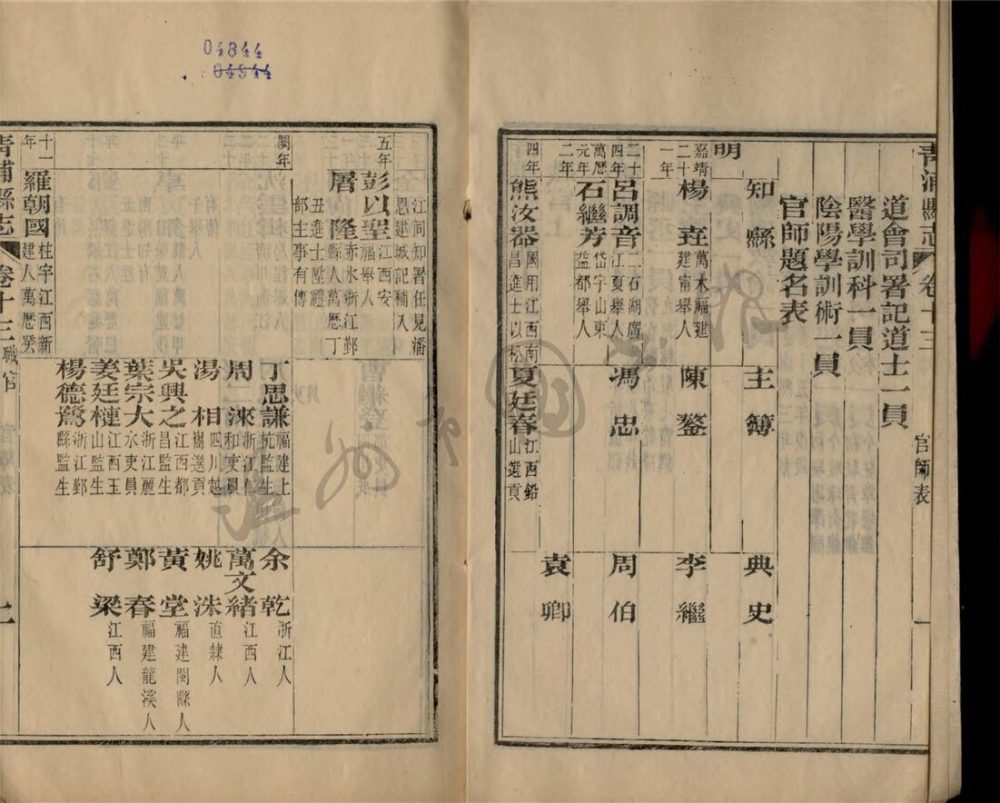 04844
04844
青浦縣志 卷十三 官師表
道會司署記道士一員
醫學訓科一員
陰陽學訓術一員
官師題名表
知縣 主簿 典史
明
嘉靖二十一年 楊 萬木福建建甯舉人 陳鏊 李繼
二十四年 呂調音 二石湖廣江夏舉人 馮忠 周伯
萬歷元年 石繼芳 岱宇山東益都舉人
二年 袁卿
四年 熊汝器 國用江西南昌進士以松 夏廷春 江西鉛山選貢
江同知署任見潘恩建城記補入
五年 彭以聖 江西安福舉人
屠隆 赤水浙江鄞縣人萬歷丁丑進士陞禮部主事有傳
閩年 丁思謙 福建上杭監生 余乾 浙江人
周淶 浙江仁和吏員 萬文緒 江西人
湯相 四川越嶲選貢 姚洙 直隸人
吳興之 江西都昌監生 黃堂 福建閩縣人
葉宗大 浙江麗水吏員 鄭春 福建龍溪人
姜廷槤 江西玉山監生 舒梁 江西人
楊德驁 浙江鄞縣監生
十一年 羅朝國 柱宇江西新建人萬歷癸
青浦縣志 卷十三 職官